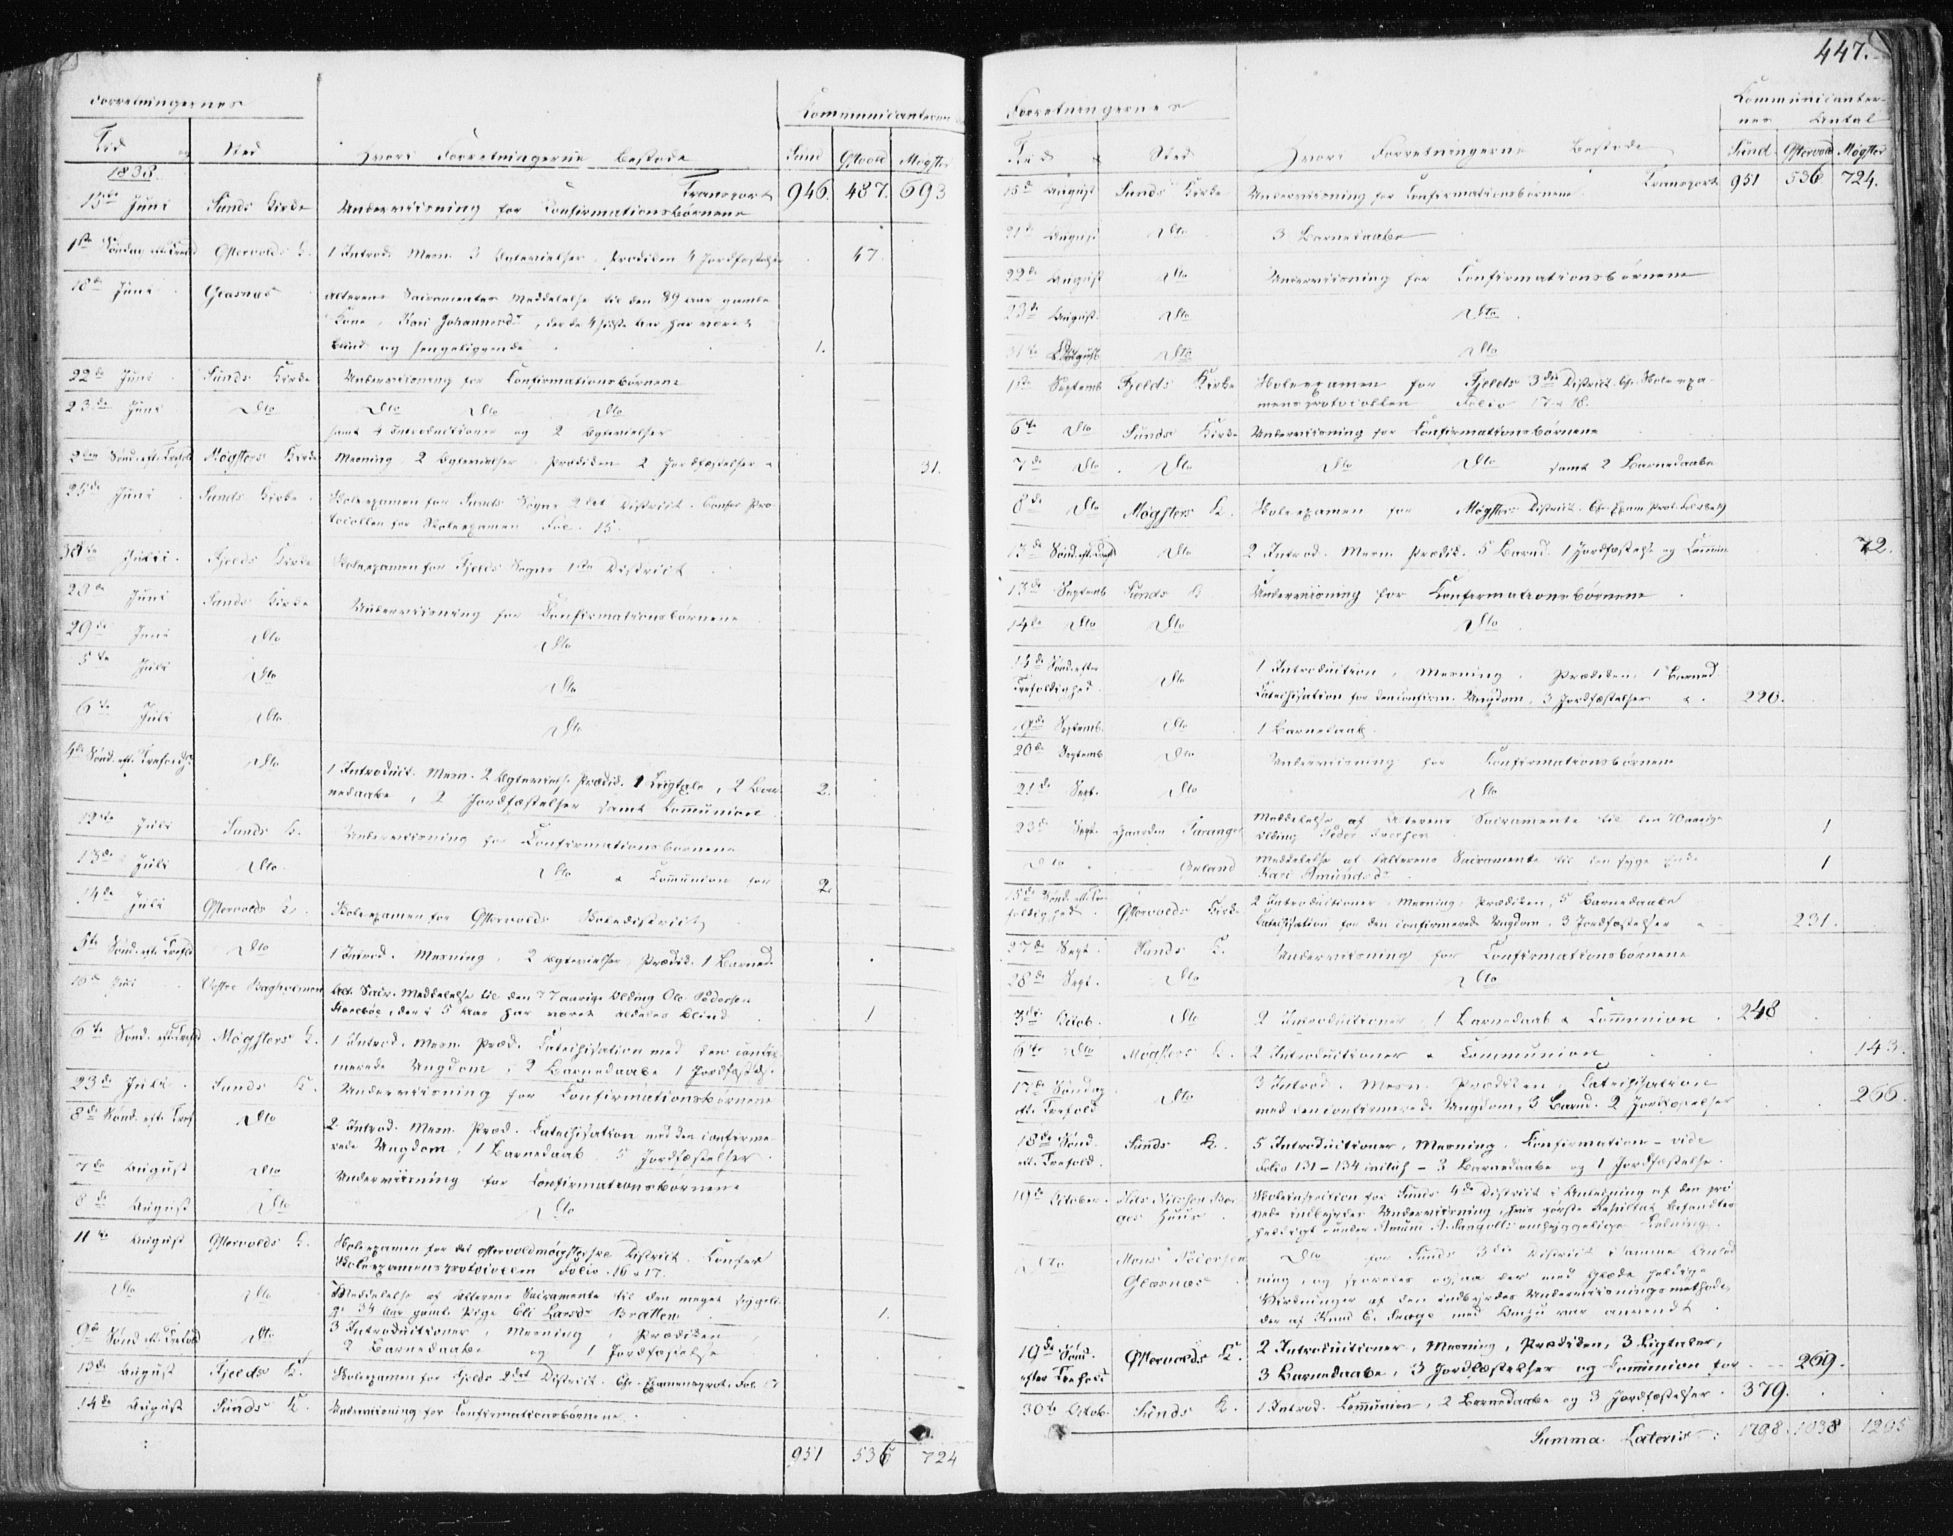 Forretningernes
Kommunicanternes
Tid og Sted Hvori Forretningerne bestode Sund Østvold Møgster
1838. Transport 946. 487. 693
15de Juni Sunds Kirke Underviisning for Confirmationsbørnene
1ste Søndag eft. Trefold Østervolds K. 1 Introd. Mesn. 3 Prædiken 4 Jordfæstelser 47.
18de Juni Glesnæs Alterens Sacramentes Meddelelse til den 89 aar gamle
Kone, Kari Johannesdr, der de 4 sidste Aar har været
blind og sengeliggende 1.
22de Juni Sunds Kirke Underviisning for Confirmationsbørnene
23de Juni Dto Dto Dto Dto
samt 4 Introductioner og 2 Egtevielser
2den Sønd. eft. Trefold Møgsters Kirke Mesning 2 Egtevielser Prædiken 2 Jordfæstelser 31.
25de Juni Sunds Kirke Skoleexamen for Sunds Sogns 2det District. Confer Pro-
tocollen for Skoleexamen Fol. 15.
Fjelds Kirke Skoleexamen for Fjelds Sogns 1ste District
28de Juni Sunds Kirke Underviisning for Confirmationsbørnene
29de Juni Dto Dto
5te Juli Dto Dto
6te Juli Dto Dto
4de Sønd. eft. Trefoldigh. Dto 1 Introduct. Mesn. 2 Egteviels. Prædik. 1 Liigtale, 2 Bar-
nedaabe, 2 Jordfæstelser samt Communion 2.
12te Juli Sunds K. Underviisning for Confirmationsbørnene
13de Juli Dto. Dto & Communion for 2.
14de Juli Østervolds K. Skoleexamen for Østervolds Skoledistrict
5te Sønd. eft. Trefold Dto 1 Introd. Mesning, 2 Egtevielser Prædik. 1 Barned.
Juli Alt. Sacr. Meddelelse til den 77 aarige Olding Ole Pedersen
, der i 5 Aar har været aldeles blind 1
6te Sønd. eft. Trefold Møgsters K. 1 Introd. Mesn. Præd. Catechisation med den confir-
merede Ungdom, 2 Barnedaabe 1 Jordfæstels.
23de Juli Sunds K. Underviisning for Confirmationsbørnene
8de Sønd. eft. Tref. Dto 2 Introd. Mesn. Præd. Catechisation med den confirme-
rede Ungdom, 1 Barnedaab 5 Jordfæstelser.
7de August Dto Underviisning for Confirmationsbørnene
8de August Dto Dto
11te August Østervolds K. Skoleexamen for det District. Confer
Skoleexamensprotocollen Folio 16 & 17.
Dto Dto Meddelelse af Alterens Sacramente til den meget sygeli-
ge 34 Aar gamle Pige Eli Larsdr Bratten 1.
9de Sønd. eft. Trefold Dto 3 Introductioner, Mesning, Prædiken,
2 Barnedaabe og 1 Jordfæstelse
13de August Fjelds K. Skoleexamen for Fjelds 2det District. Cfr. Examensprot. Fol. 17
14de August Sunds K. Underviisning for Confirmationsbørnene.
951 536 724
447.
Forretningernes
Kommunicanter-
nes Antal
Tid & Sted Hvori Forretningerne bestode Sund Østervold Møgster
Transport 951 536 724.
15de August Sunds Kirke Underviisning for Confirmationsbørnene
21de August Dto 3 Barnedaabe
22de August Dto Underviisning for Confirmationsbørnene
23de August. Dto Dto.
31te August Dto Dto
1ste Septemb Fjelds Kirke Skoleexamen for Fjelds 3die District. Cfr. Skoleexa-
mensprotocollen Folio 17 & 18.
6te Dto Sunds Kirke Underviisning for Confirmationsbørnene
7de Dto. Dto Dto Dto samt 2 Barnedaabe
8de Dto Møgsters K. Skoleexamen for Møgsters District. Cfr. Exam. Prot.
13de Sønd. eft. Trefold Dto 2 Introd. Mesn. Prædik. 5 Barned. 1 Jordfæstelse og Commun. 72.
13de Septemb Sunds K Underviisning for Confirmationsbørnene.
14de Dto Dto Dto.
14de Sønd. efter
Trefoldighed. Dto 1 Introduction, Mesning, Prædiken, 1 Barned
Catechisation for den confirm. Ungdom, 3 Jordfæstelser & 220.
19de Septemb. Dto 1 Barnedaab.
20de Septemb Dto Underviisning for Confirmationsbørnene
21de Sept. Dto Dto
23de Sept. Gaarden Toranger Meddelelse af Alterens Sacramente til den 70 aarige
Olding Peder Iversen 1
Dto Meddelelse af Alterens Sacramente til den syge
Kari Amundsdr. 1
15de Sønd. eft. Tre-
foldighed. Østervolds Kirke 2 Introductioner, Mesning, Prædiken, 5 Barnedaabe
Catechisation for den confirmerede Ungdom. 3 Jordfæstelser & 231.
27de Sept. Sunds K. Underviisning for Confirmationsbørnene
28de Sept. Dto Dto
3die Octob. Dto 2 Introductioner, 1 Barnedaab & Communion. 248
6te Dto Møgsters K. 2 Introductioner & Communion 143.
17de Søndag
eft. Trefold Dto 3 Introd. Mesn. Prædiken, Catechisation
med den confirmerede Ungdom, 3 Barned. 2 Jordfæstelser 266.
18de Sønd.
eft. Trefold. Sunds K. 5 Introductioner, Mesning. Confirmation – vide
Folio 131–134 inclus. – 3 Barnedaabe og 1 Jordfæstelse.
19de October. Nils Nilssen
Huus Skoleinspection for Sunds 4de District i Anledning af den
indbyrdes Underviisning, hvis første Resultat befandtes
heldigt under Amund A. omhyggelige Ledning.
Dto Mons Pedersen
Glæsnæs Dto for Sunds 3die District i samme Anled-
ning, og sporedes ogsaa der med Glæde heldige
Virkninger af den indbyrdes Underviisningsmethode,
der af Knud C. med var anvendt.
19de Sønd.
efter Trefold Østervolds K. 2 Introductioner, Mesning, Prædiken, 3 Ligtaler,
3 Barnedaabe, 3 Jordfæstelser og Communion for 269.
30te Octob. Sunds K. 1 Introd. Communion, 2 Barnedaabe og 3 Jordfæstelser. 379.
Summa Lateris: 1798. 1038 1205